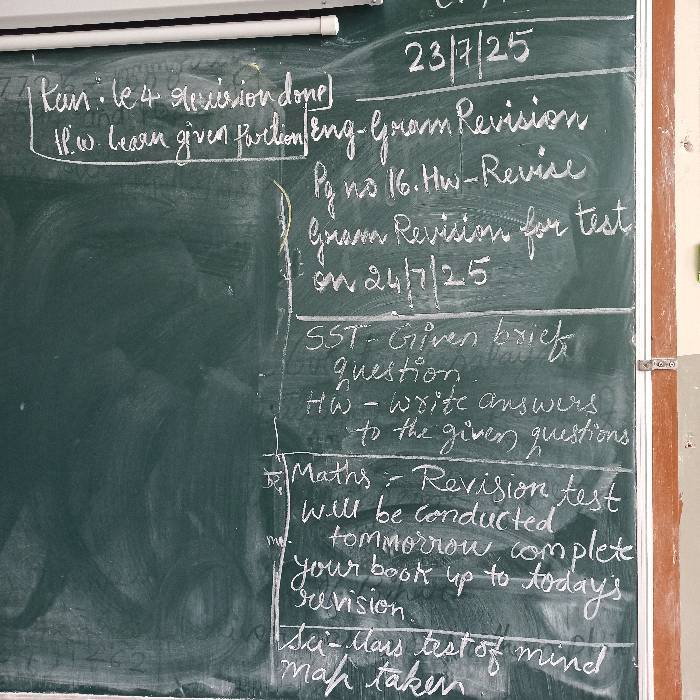 23/7/25
Kan: le 4 revision done
H.w. Learn given portion
Eng-Gram Revision
Pg no 16. Hw-Revise
Gram Revision for test
on 24/7/25
SST- Given brief
question
HW - write answers
to the given questions
Maths :- Revision test
will be conducted
tommorrow, complete
your book up to today's
revision
Sci- Class test of mind
map taken